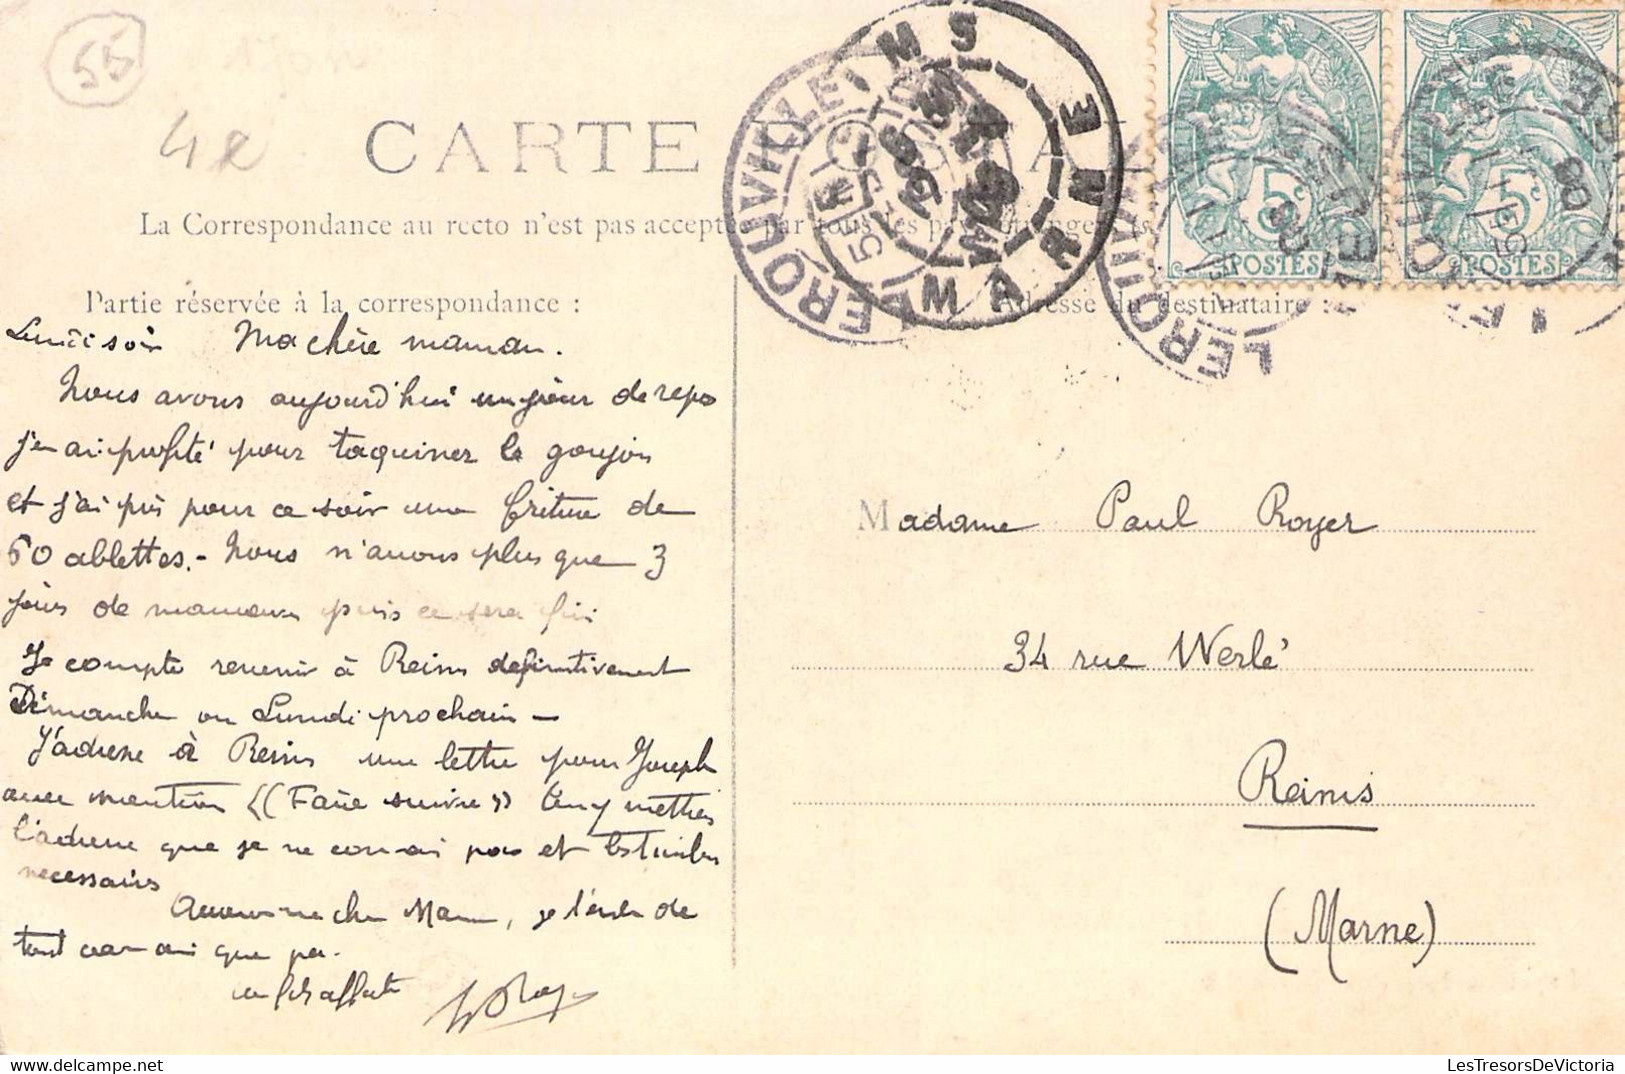 55
4e
CARTE
La Correspondance au recto n'est pas acceptée par tous les pays étrangers
Partie réservée à la correspondance :
Adresse du destinataire :
LEROUVILLE
REIMS
MARNE
LEROUVILLE
5
5
POSTES
POSTES
Lundi soir Ma chère maman.
Nous avons aujourd'hui un jour de repos
j'en ai profité pour taquiner le goujon
et j'ai pris pour ce soir une friture de
60 ablettes. - Nous n'avons plus que 3
jours de manoeuvres puis ce sera fini
Je compte revenir à Reims definitivement
Dimanche ou Lundi prochain -
J'adresse à Reims une lettre pour Joseph
avec mention "(Faire suivre") tu y mettras
l'adresse que je ne connais pas et les timbres
necessaires
Au revoir ma chère Maman, je t'embrasse de
tout coeur ainsi que papa.
ton fils affectueux
Madame Paul Royer
34 rue Werlé
Reims
(Marne)
LesTresorsDeVictoria.com